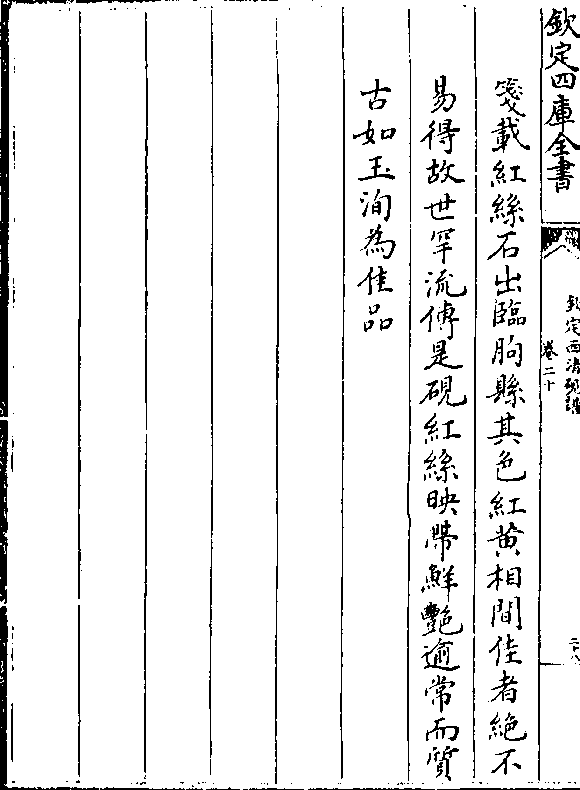 欽定四庫全書
欽定西清硯譜
卷二十
二十八
箋載紅絲石出臨朐縣其色紅黄相間佳者絶不
易得故世罕流傳是硯紅絲映帶鮮艷逾常而質
古如玉洵為佳品